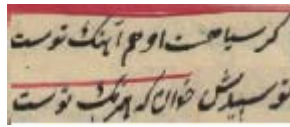 گر سیاهست او هم آهنگ توست
تو سپیدش خوان که همرنگ توست